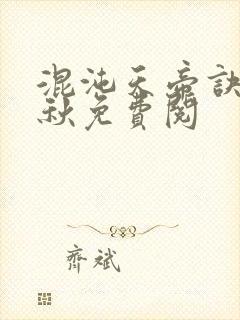 混沌天帝訣
秋免費閱
齊斌